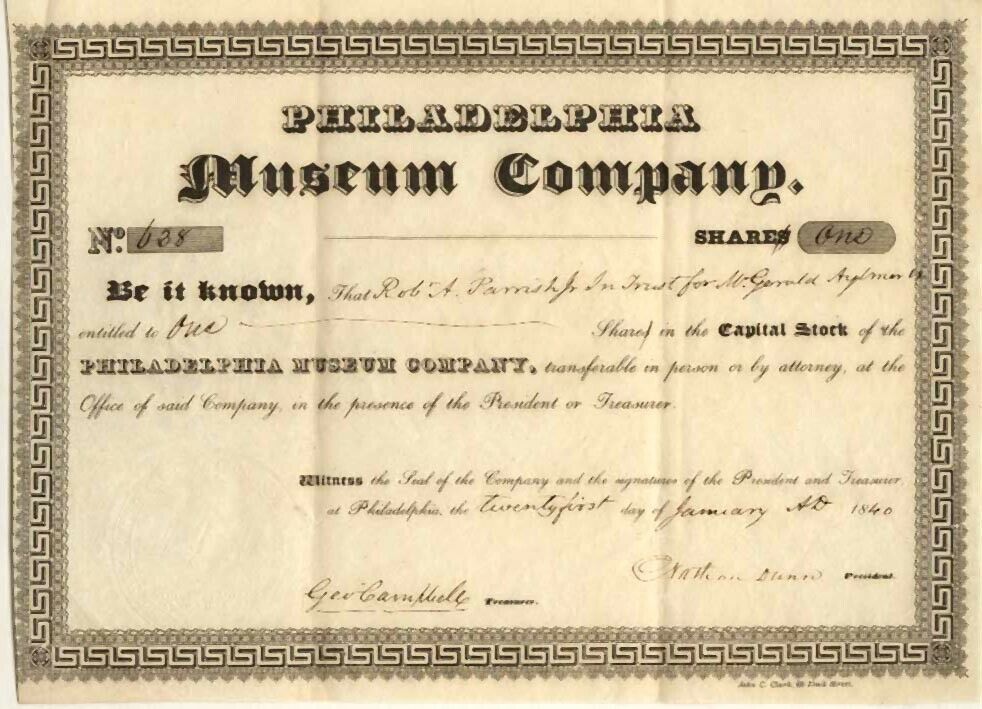 PHILADELPHIA
Museum Company.
No. 638 SHARES One
Be it known, That Robt A. Parrish Jr In Trust for Mr Gerald Aylmer is
entitled to One Shares in the Capital Stock of the
PHILADELPHIA MUSEUM COMPANY, transferable in person or by attorney, at the
Office of said Company, in the presence of the President or Treasurer.
Witness the Seal of the Company and the signatures of the President and Treasurer,
at Philadelphia, the twenty first day of January AD 1840
Nathan Dunn President.
Geo Campbell Treasurer.
John C. Clark, Street.